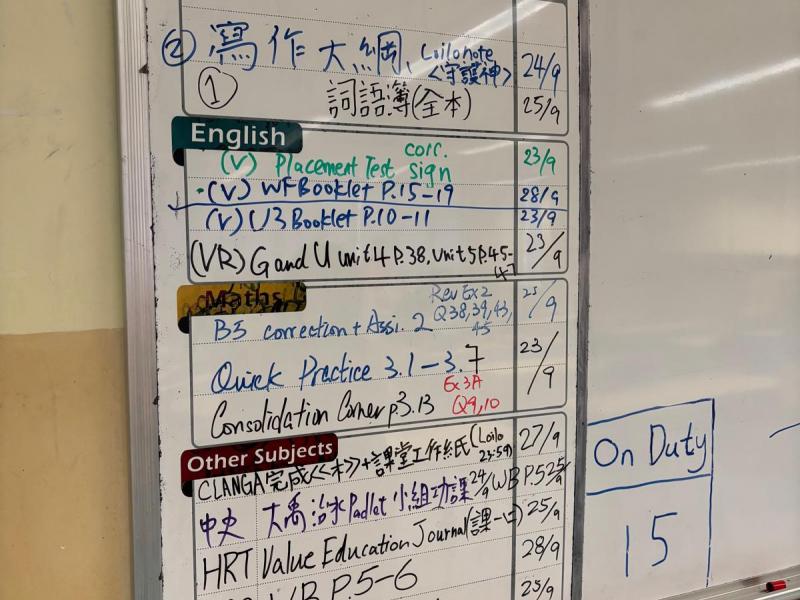 ② 寫作大綱、Loilonote <守護神> 24/9
① 詞語簿(全本) 25/9
English
(V) Placement Test corr. sign 23/9
(V) WF Booklet P.15-19 28/9
(V) U3 Booklet P.10-11 23/9
(VR) G and U unit 4 P.38, unit 5 P.45-47 23/9
Maths
B5 correction + Assi. 2 Rev Ex2 Q38,39,43,45 23/9
Quick Practice 3.1-3.7 23/9
Consolidation Corner P.3.13 Ex 3A Q9,10
Other Subjects
CLANGA 完成<<本>>+課堂工作紙(Loilo 23:59) 27/9
中史 大禹治水Padlet小組功課 24/9 WB P.5 25/9
HRT Value Education Journal 25/9
WB P.5-6 28/9
25/9
On Duty
15